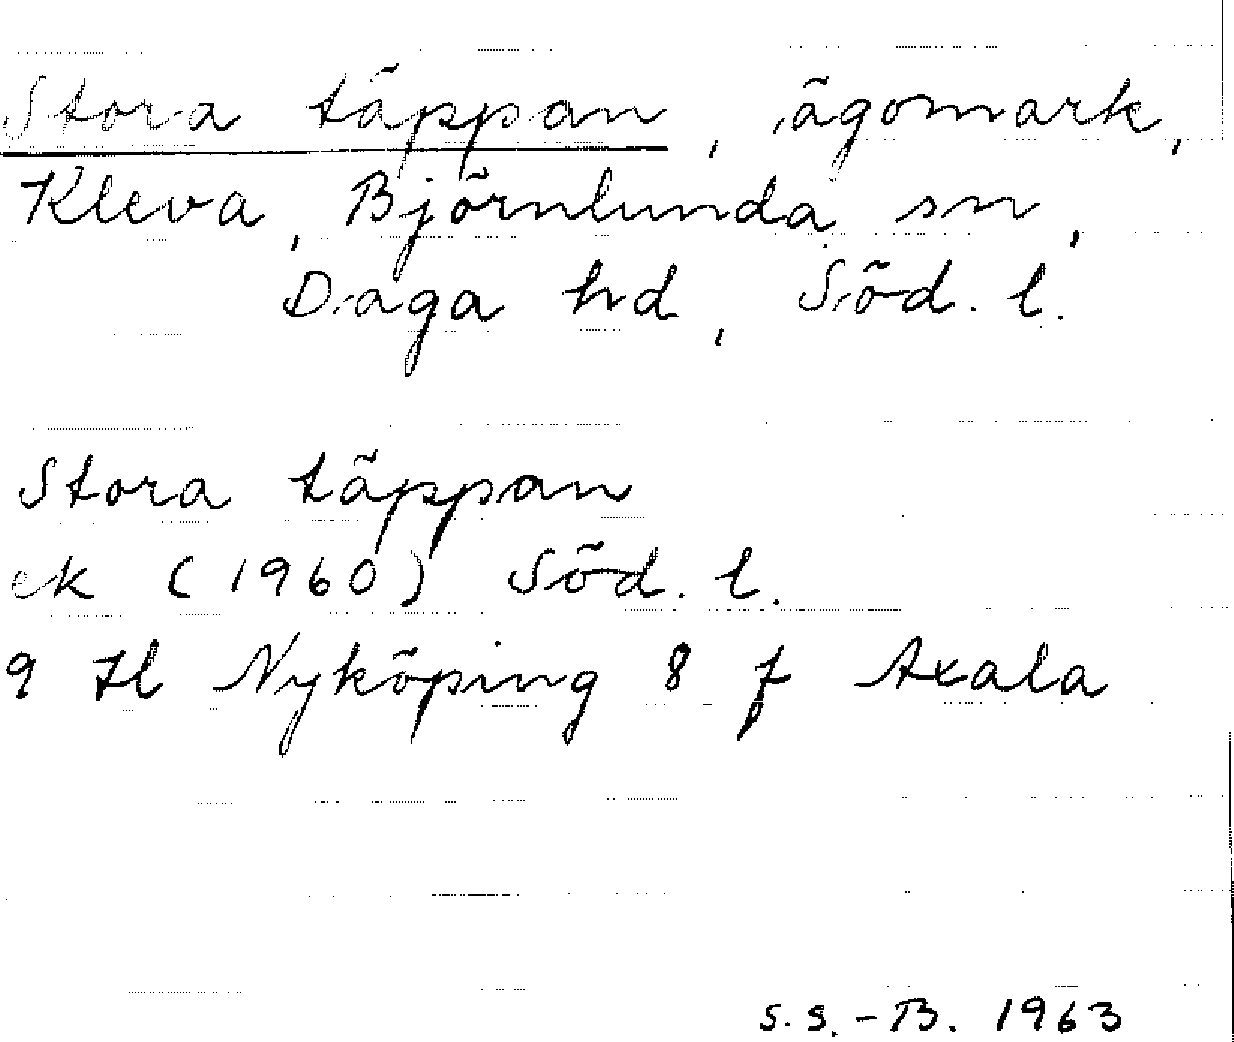 Stora täppan, ägomark,
Kleva, Björnlunda sn,
Daga hd, Söd. l.
Stora täppan
ek (1960) Söd. l.
9 H Nyköping 8 f Axala
S.S.-B. 1963